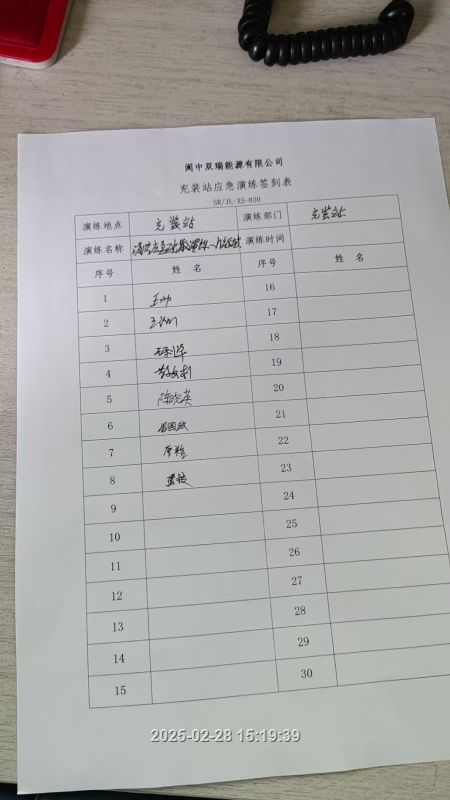 阆中双瑞能源有限公司
充装站应急演练签到表
SR/JL-XS-030
演练地点 充装站 演练部门 充装站
演练名称 演练时间
序号 姓 名 序号 姓 名
1 王帅 16
2 17
3 18
4 19
5 陈晓英 20
6 国政 21
7 22
8 23
9 24
10 25
11 26
12 27
13 28
14 29
15 30
2025-02-28 15:19:39